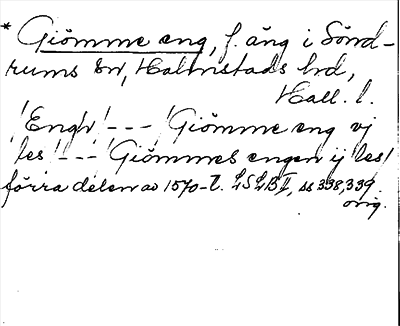 * Giömme eng, f. äng i Sönd-
rums sn, Halmstads hd,
Hall. l.
'Engh' --- 'Giömme eng vj
les' --- 'Giömmes engen ij les'
förra delen av 1570-t. LSLB II, ss 338, 339.
orig.